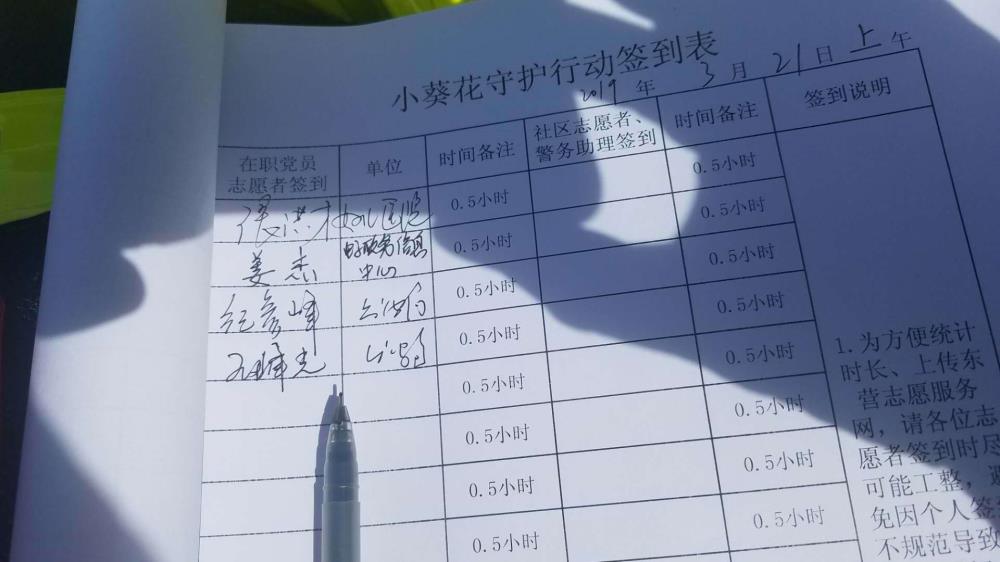 小葵花守护行动签到表
2019 年 3 月 21 日 上 午
在职党员
志愿者签到
单位
时间备注
社区志愿者、
警务助理签到
时间备注
签到说明
0.5小时
0.5小时
姜杰
中心
0.5小时
0.5小时
纪彦峰
0.5小时
0.5小时
0.5小时
0.5小时
0.5小时
0.5小时
0.5小时
0.5小时
0.5小时
0.5小时
0.5小时
0.5小时
0.5小时
1.为方便统计
时长、上传东
营志愿服务
网，请各位志
愿者签到时尽
可能工整，避
免因个人签
不规范导致